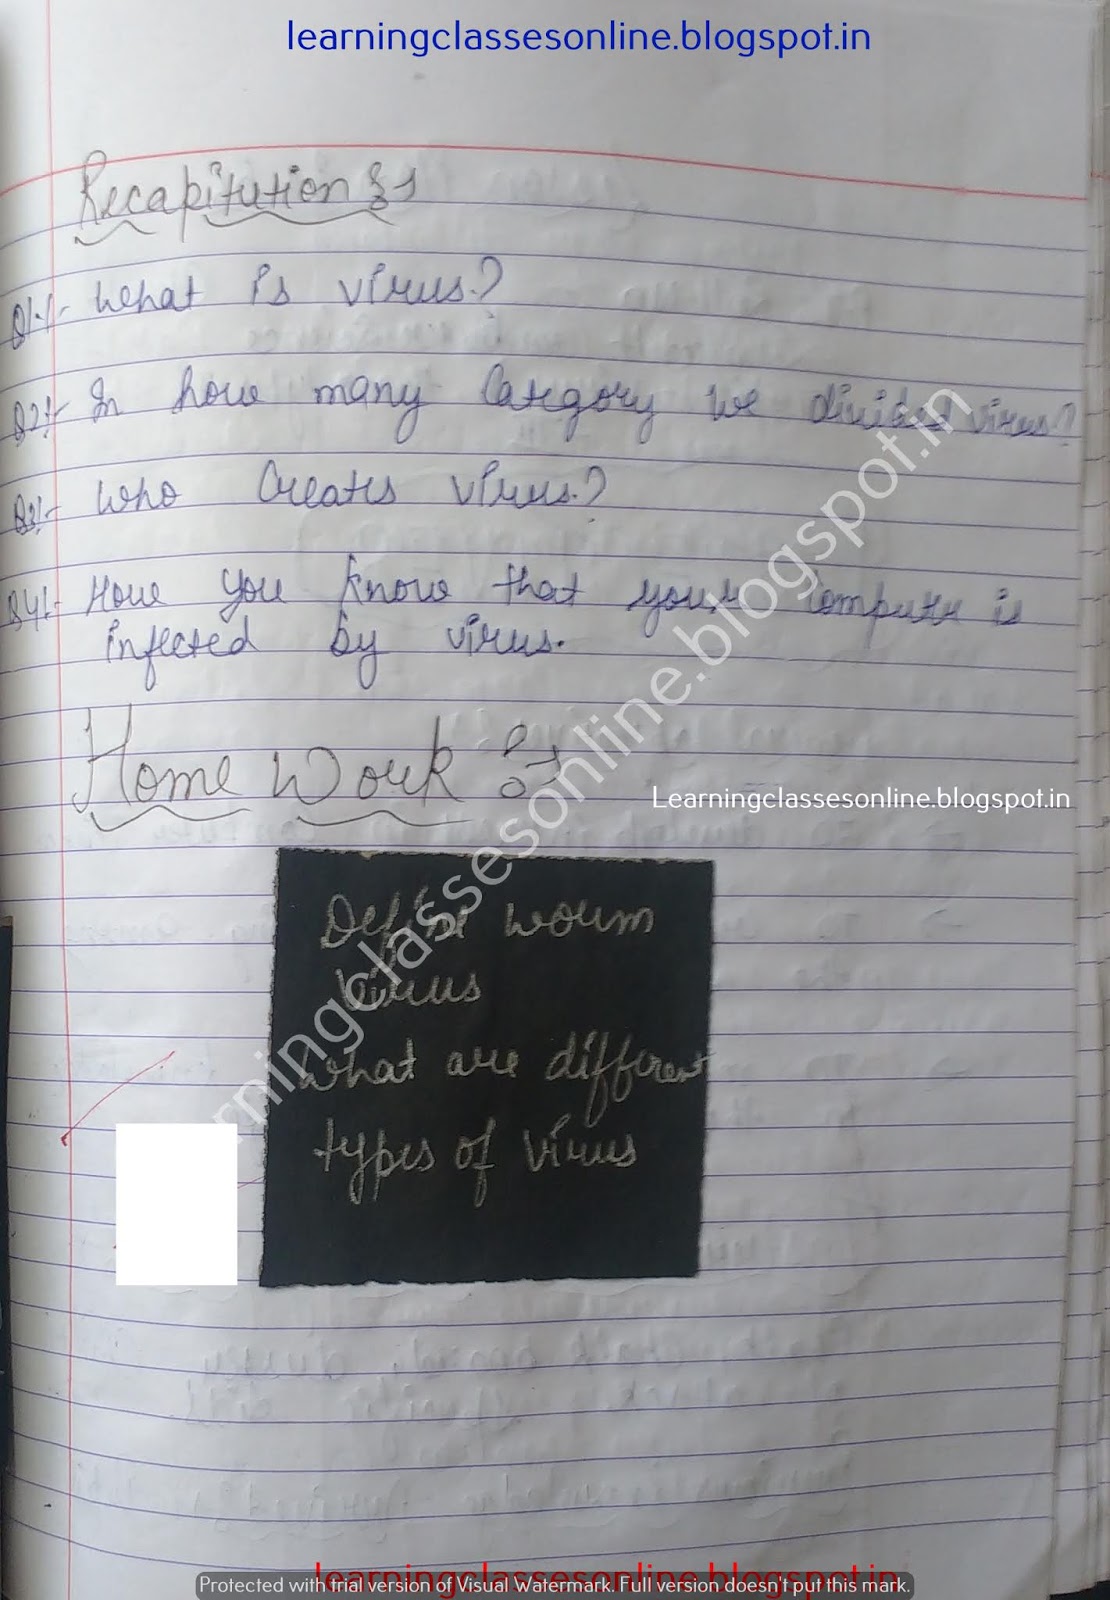 learningclassesonline.blogspot.in
Recapitution :-
Q1:- What is virus.?
Q2:- In how many Category we divided virus?
Q3:- Who Creates virus.?
Q4:- How you know that your computer is
infected by virus.
Home Work :-
Learningclassesonline.blogspot.in
Define worm
Virus
What are different
types of virus
learningclassesonline.blogspot.in
Protected with trial version of Visual Watermark. Full version doesn't put this mark.